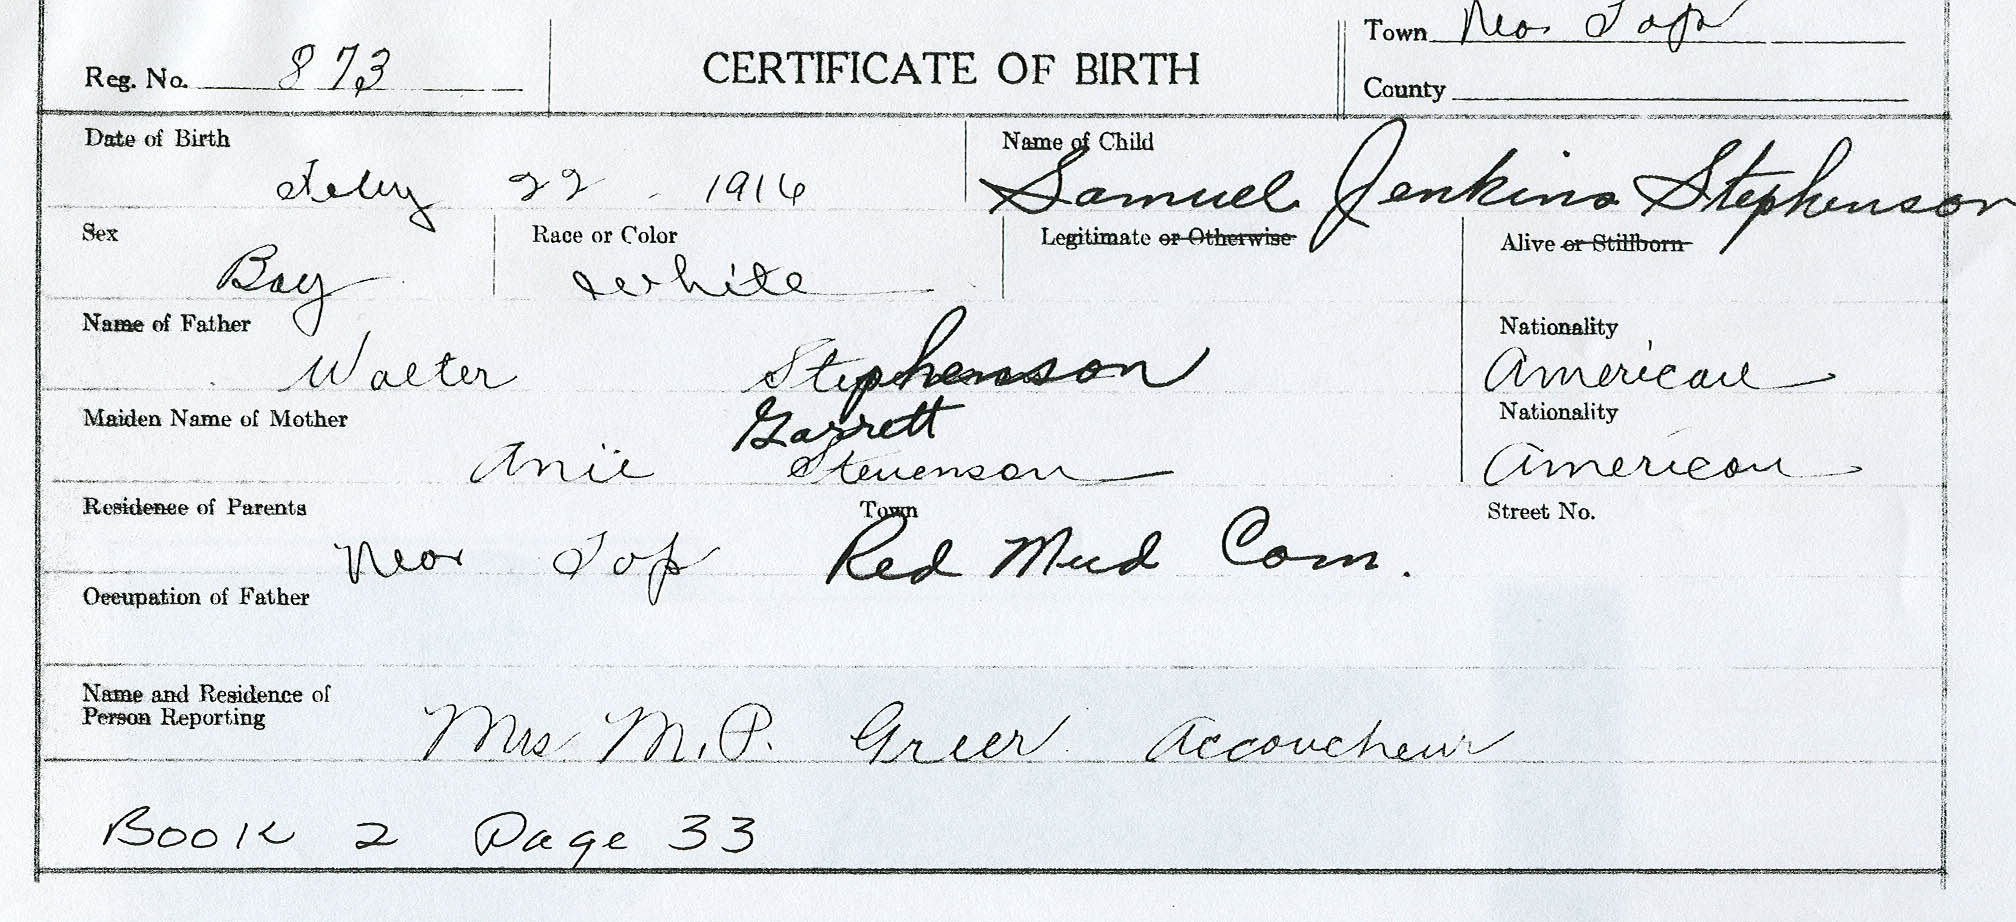 Town Near Top
Reg. No. 873
CERTIFICATE OF BIRTH
County
Date of Birth
Name of Child
Feby 22 1916
Samuel Jenkins Stephenson
Sex
Race or Color
Legitimate or Otherwise
Alive or Stillborn
Boy
White
Name of Father
Nationality
Walter Stephenson
American
Maiden Name of Mother
Garrett
Nationality
Anie Stevenson
American
Residence of Parents
Town
Street No.
Near Top Red Mud Com.
Occupation of Father
Name and Residence of
Person Reporting
Mrs M.P. Greer Accoucheur
Book 2 Page 33